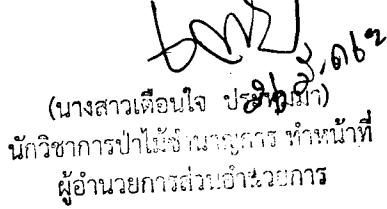 (นางสาวเตือนใจ
นักวิชาการป่าไม้ชำนาญการ ทำหน้าที่
ผู้อำนวยการส่วนอำนวยการ